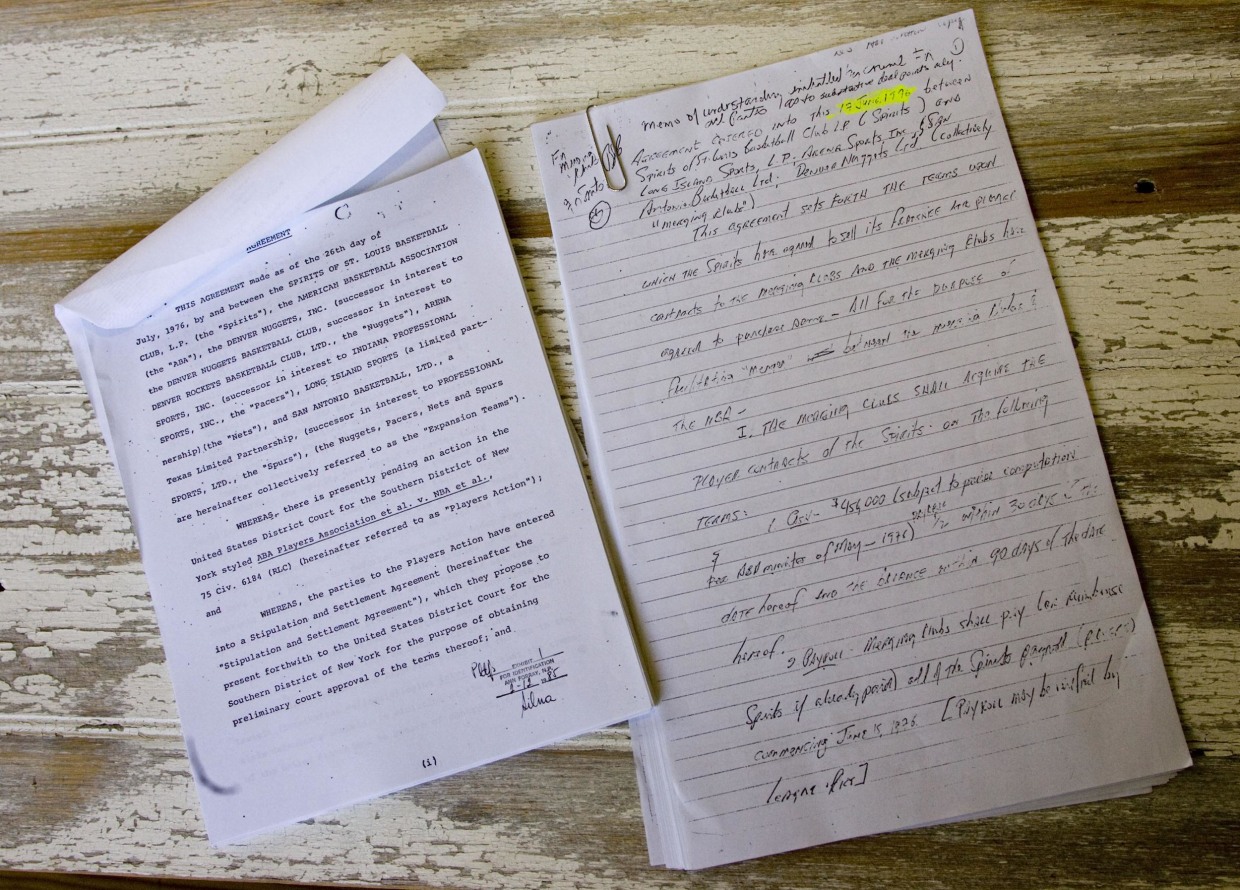 AGREEMENT
THIS AGREEMENT made as of the 26th day of
July, 1976, by and between the SPIRITS OF ST. LOUIS BASKETBALL
CLUB, L.P. (the "Spirits"), the AMERICAN BASKETBALL ASSOCIATION
(the "ABA"), the DENVER NUGGETS, INC. (successor in interest to
the DENVER NUGGETS BASKETBALL CLUB, successor in interest to
DENVER ROCKETS BASKETBALL CLUB, LTD., the "Nuggets"), ARENA
SPORTS, INC. (successor in interest to INDIANA PROFESSIONAL
SPORTS, INC., the "Pacers"), LONG ISLAND SPORTS (a limited part-
nership) (the "Nets"), and SAN ANTONIO BASKETBALL, LTD., a
Texas Limited Partnership, (successor in interest to PROFESSIONAL
SPORTS, LTD., the "Spurs"), (the Nuggets, Pacers, Nets and Spurs
are hereinafter collectively referred to as the "Expansion Teams").
WHEREAS, there is presently pending an action in the
United States District Court for the Southern District of New
York styled ABA Players Association et al. v. NBA et al.,
75 Civ. 6184 (RLC) (hereinafter referred to as "Players Action");
and
WHEREAS, the parties to the Players Action have entered
into a Stipulation and Settlement Agreement (hereinafter the
"Stipulation and Settlement Agreement"), which they propose to
present forthwith to the United States District Court for the
Southern District of New York for the purpose of obtaining
preliminary court approval of the terms thereof; and
EXHIBIT 1
FOR IDENTIFICATION
Silna
(i)
①
Memo of understanding initialled in counsel
and parties as to substantive deal points only.
AGREEMENT ENTERED INTO THIS 17 June 1976 between
Spirits of St. Louis Basketball Club L.P. (Spirits) and
Long Island Sports, L.P. Arena Sports, Inc., San
Antonio Basketball Ltd. Denver Nuggets Ltd (collectively
"merging clubs")
This agreement sets forth the terms upon
which the Spirits has agreed to sell its franchise and player
contracts to the merging clubs and the merging clubs have
agreed to purchase same - All for the purpose of
facilitating "merger"
The NBA -
I. The merging clubs shall acquire the
player contracts of the Spirits on the following
TERMS:
1 Cash - $454,000 (subject to precise computation
for ABA minutes of May - 1976) 1/2 within 30 days of the
date hereof and the balance within 90 days of the date
hereof.
2 Payroll - Merging clubs shall pay (or reimburse
Spirits if already paid) all of the Spirits payroll
commencing June 15, 1976 [Payroll may be verified by
league office]